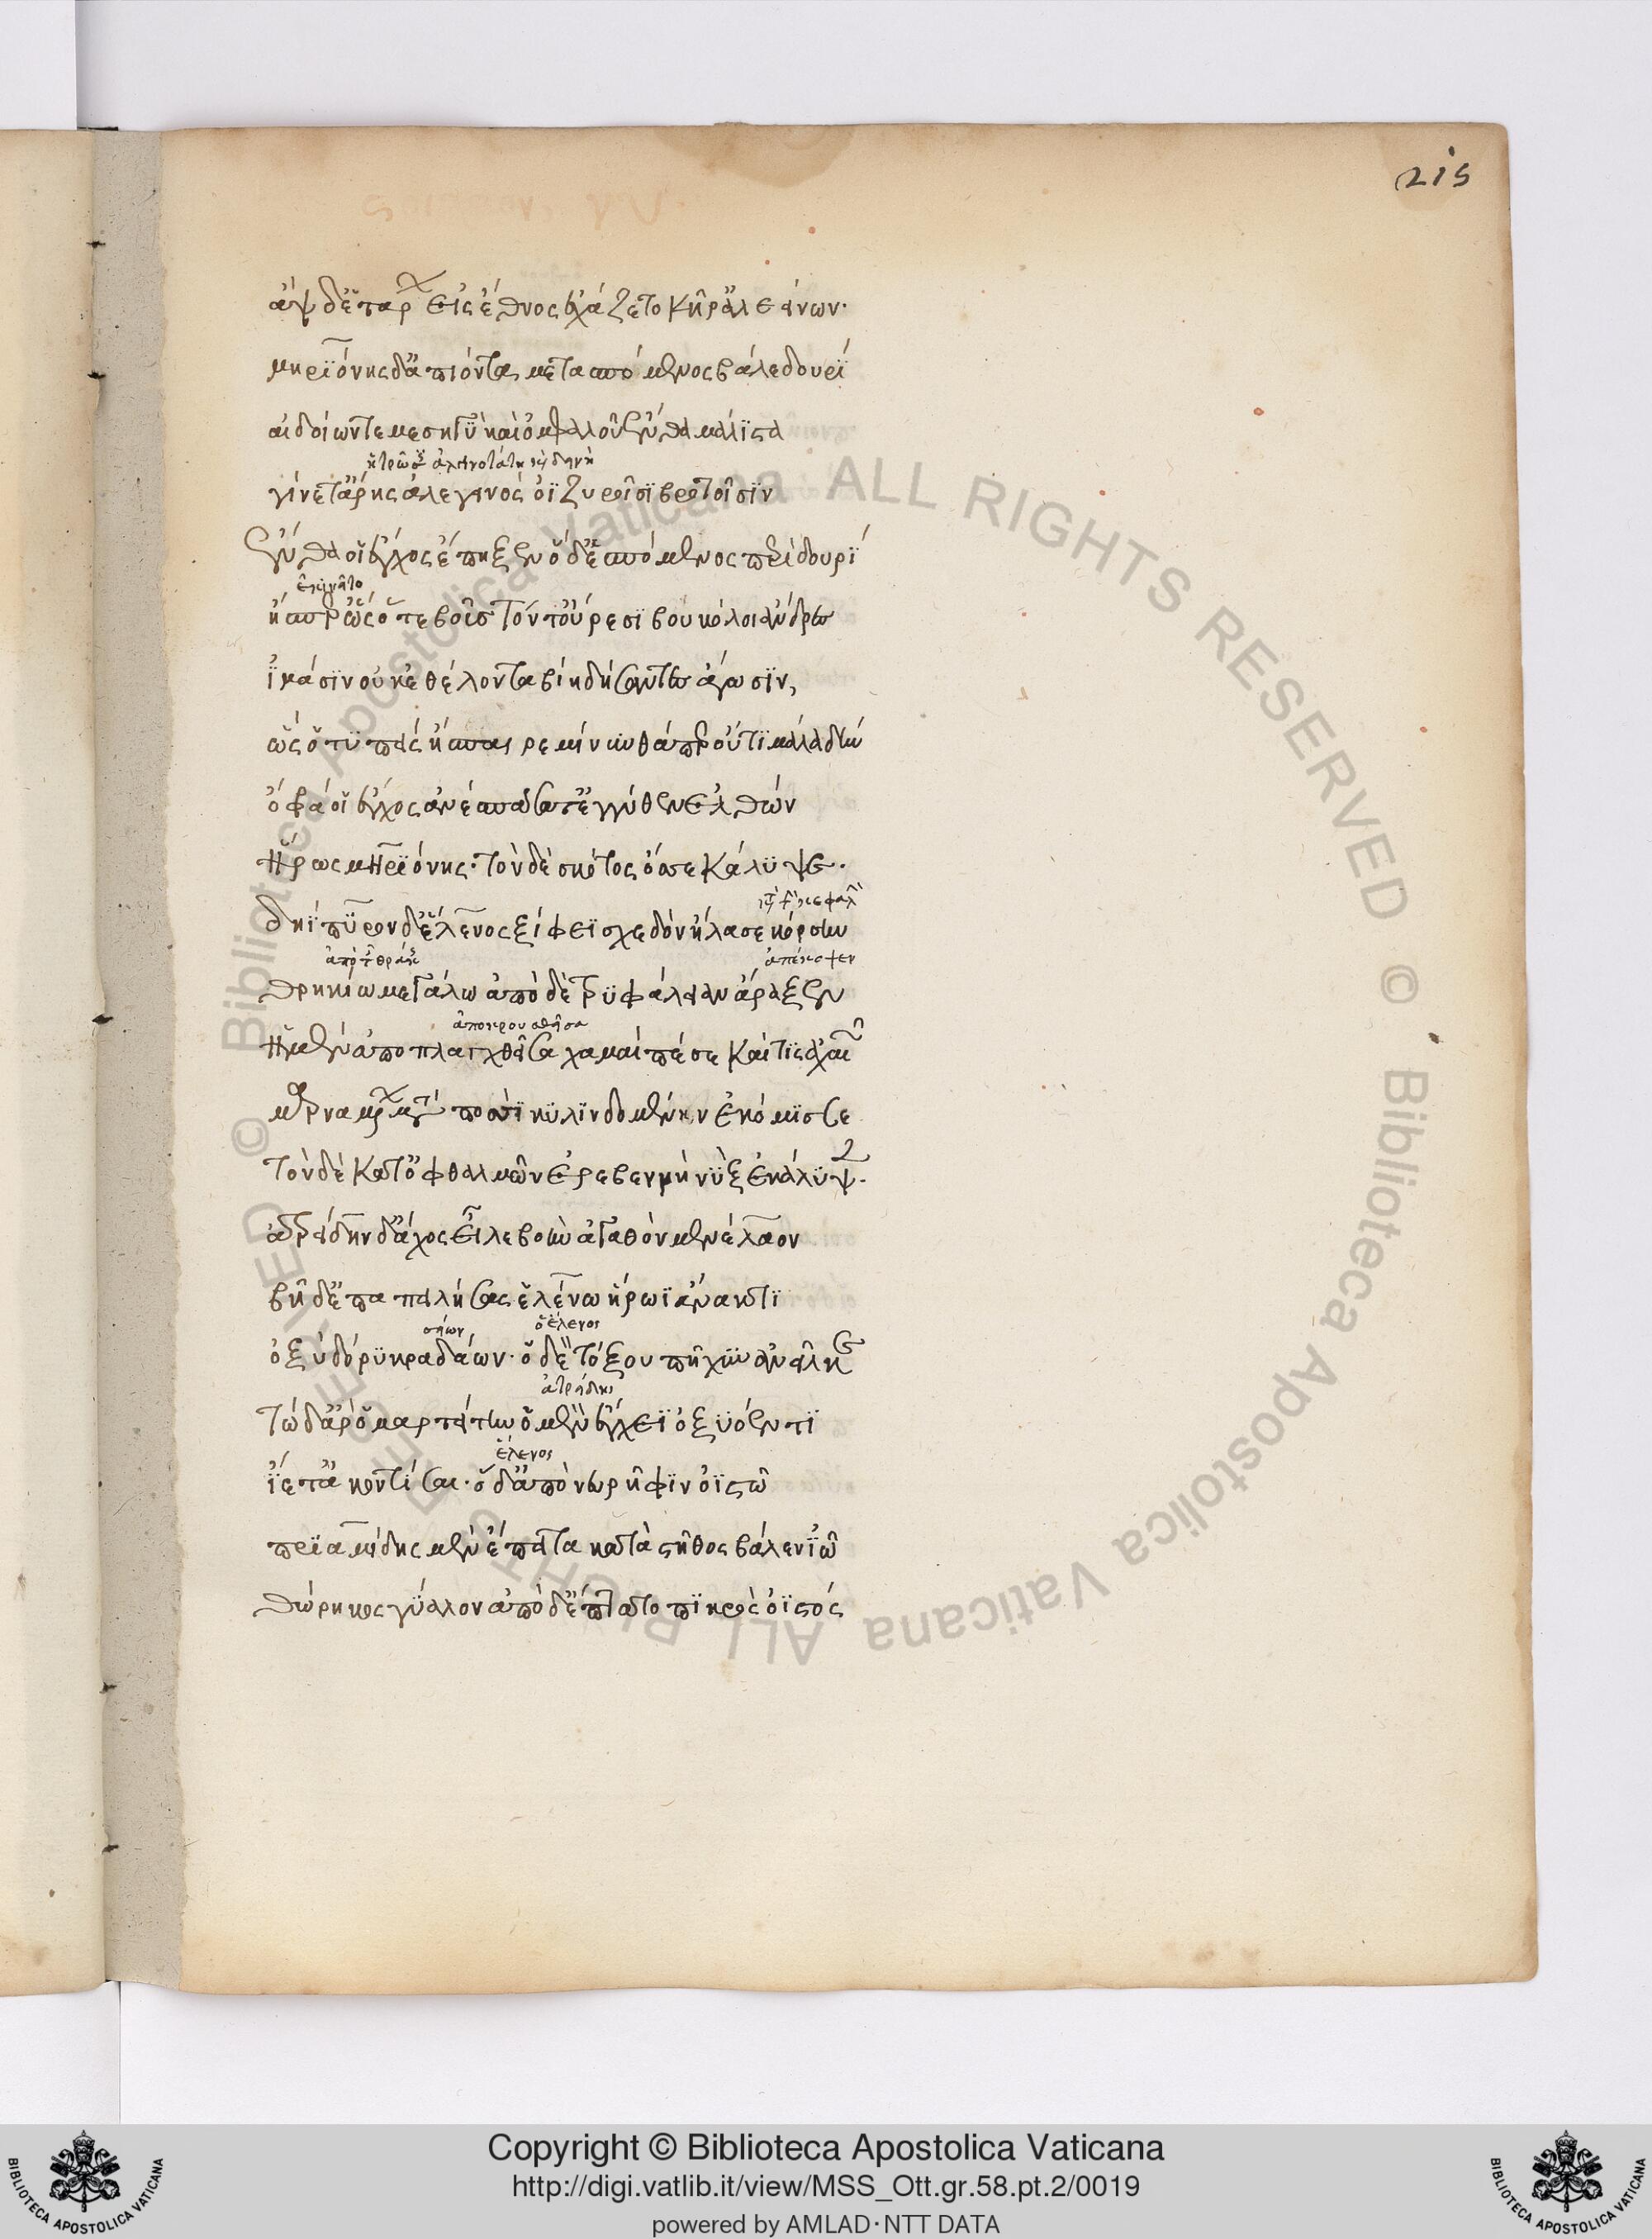 215
ἂψ δ' ἑτάρων εἰς ἔθνος ἐχάζετο κῆρ' ἀλεείνων·
μηριόνης δ' ἀπιόντα μετασπόμενος βάλε δουρὶ
αἰδοίων τε μεσηγὺ καὶ ὀμφαλοῦ ἔνθα μάλιστα
γίνετ' ἄρης ἀλεγεινὸς ὀϊζυροῖσι βροτοῖσιν
ἔνθα οἱ ἔγχος ἔπηξεν ὁ δ' ἑσπόμενος περὶ δουρὶ
ἤσπαιρ' ὡς ὅτε βοῦς τόν τ' οὔρεσι βουκόλοι ἄνδρες
ἰλλάσιν οὐκ ἐθέλοντα βίη δήσαντες ἄγουσιν,
ὣς ὃ τυπεὶς ἤσπαιρε μίνυνθά περ οὔτι μάλα δήν
ὄφρά οἱ ἔγχος ἀνεσπάσατ' ἐγγύθεν ἐλθών
ἥρως μηριόνης· τὸν δὲ σκότος ὄσσε κάλυψε·
δηΐπυρον δ' ἕλενος ξίφεϊ σχεδὸν ἤλασε κόρσην
ἀπέκοψεν
θρηικίω μεγάλω ἀπὸ δὲ τρυφάλειαν ἄραξεν
ἀποκρουσθεῖσα
ἡ μὲν ἀποπλαγχθεῖσα χαμαὶ πέσε καί τις ἀχαιῶν
μαρναμένων μετὰ ποσσὶ κυλινδομένην ἐκόμισσε
τὸν δὲ κατ' ὀφθαλμῶν ἐρεβεννὴ νὺξ ἐκάλυψε·
ἀτρείδην δ' ἄχος εἷλε βοὴν ἀγαθὸν μενέλαον
βῆ δ' ἐπαπειλήσας ἑλένω ἥρωι ἄνακτι
σείων ὁ ἕλενος
ὀξὺ δόρυ κραδάων· ὁ δὲ τόξου πῆχυν ἄνειλκε
ἀτρείδης
τὼ δ' ἄρ' ὁμαρτήτην ὁ μὲν ἔγχεϊ ὀξυόεντι
ἕλενος
ἵετ' ἀκοντίσσαι· ὁ δ' ἀπὸ νευρῆφιν ὀϊστῶ
πριαμίδης μὲν ἔπειτα κατὰ στῆθος βάλεν ἰῶ
θώρηκος γύαλον ἀπὸ δ' ἔπτατο πικρὸς ὀϊστός
ALL RIGHTS RESERVED © Biblioteca Apostolica Vaticana
Copyright © Biblioteca Apostolica Vaticana
http://digi.vatlib.it/view/MSS_Ott.gr.58.pt.2/0019
powered by AMLAD·NTT DATA
BIBLIOTECA APOSTOLICA VATICANA
BIBLIOTECA APOSTOLICA VATICANA